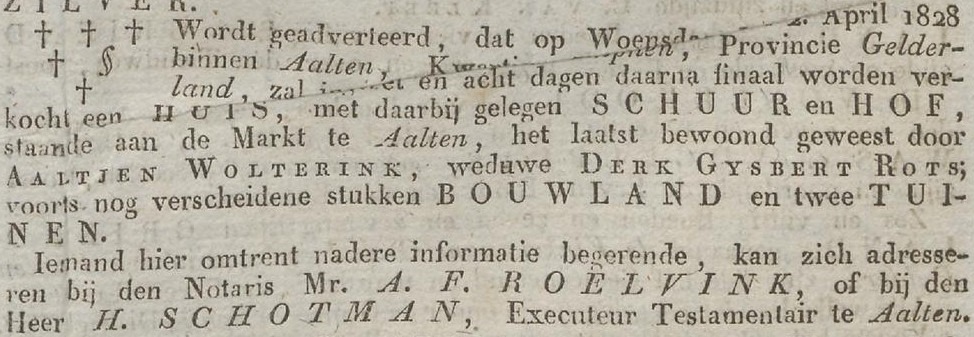 ZILVER.
† † † Wordt geadverteerd, dat op Woensd April 1828
† § binnen Aalten, Provincie Gelder-
† land, zal en acht dagen daarna finaal worden ver-
kocht een HUIS, met daarbij gelegen SCHUUR en HOF,
staande aan de Markt te Aalten, het laatst bewoond geweest door
AALTJEN WOLTERINK, weduwe DERK GYSBERT ROTS;
voorts nog verscheidene stukken BOUWLAND en twee TUI-
NEN.
Iemand hier omtrent nadere informatie begerende, kan zich adresse-
ren bij den Notaris Mr. A. F. ROELVINK, of bij den
Heer H. SCHOTMAN, Executeur Testamentair te Aalten.